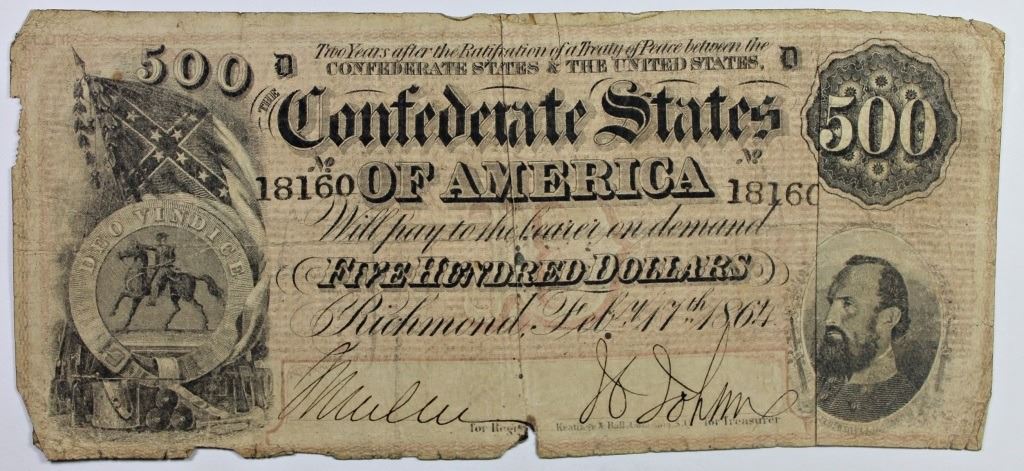 500 D Two Years after the Ratification of a Treaty of Peace between the D
CONFEDERATE STATES & THE UNITED STATES,
THE Confederate States 500
No No
18160 OF AMERICA 18160
DEO VINDICE
Will pay to the bearer on demand
FIVE HUNDRED DOLLARS
Richmond, Feby. 17th 1864
for Keatinge & Ball, for Treasurer